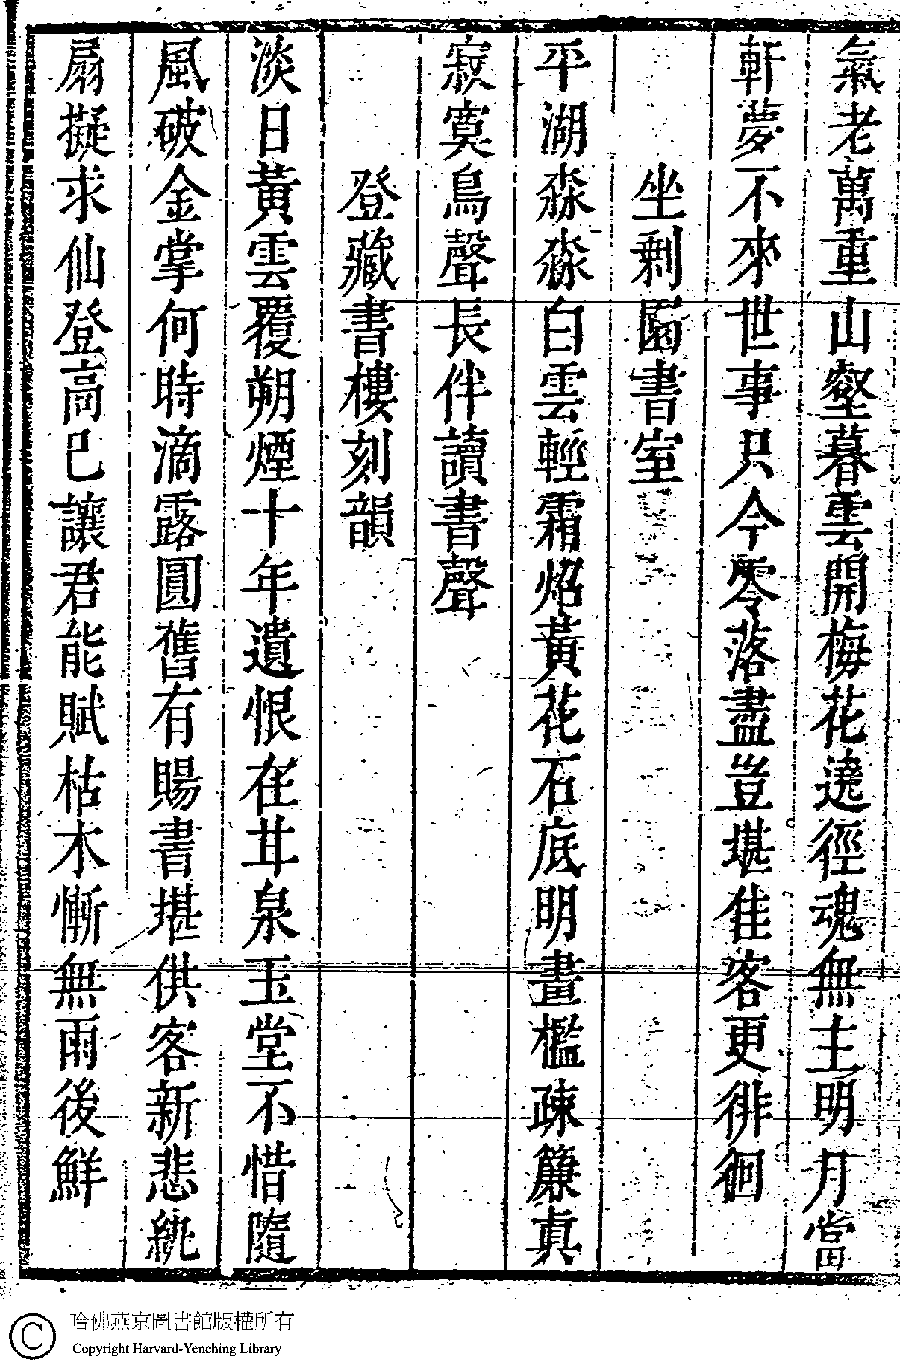 氣老萬重山壑暮雲開梅花遶徑魂無主明月當
軒夢不來世事只今零落盡豈堪佳客更徘徊
坐剩園書室
平湖淼淼白雲輕霜焰黃花石底明畫檻疎簾真
寂寞鳥聲長伴讀書聲
登藏書樓刻韻
淡日黃雲覆朔煙十年遺恨在甘泉玉堂不惜隨
風破金掌何時滴露圓舊有賜書堪供客新悲紈
扇擬求仙登高已讓君能賦枯木慚無雨後鮮
哈佛燕京圖書館版權所有
Copyright Harvard-Yenching Library